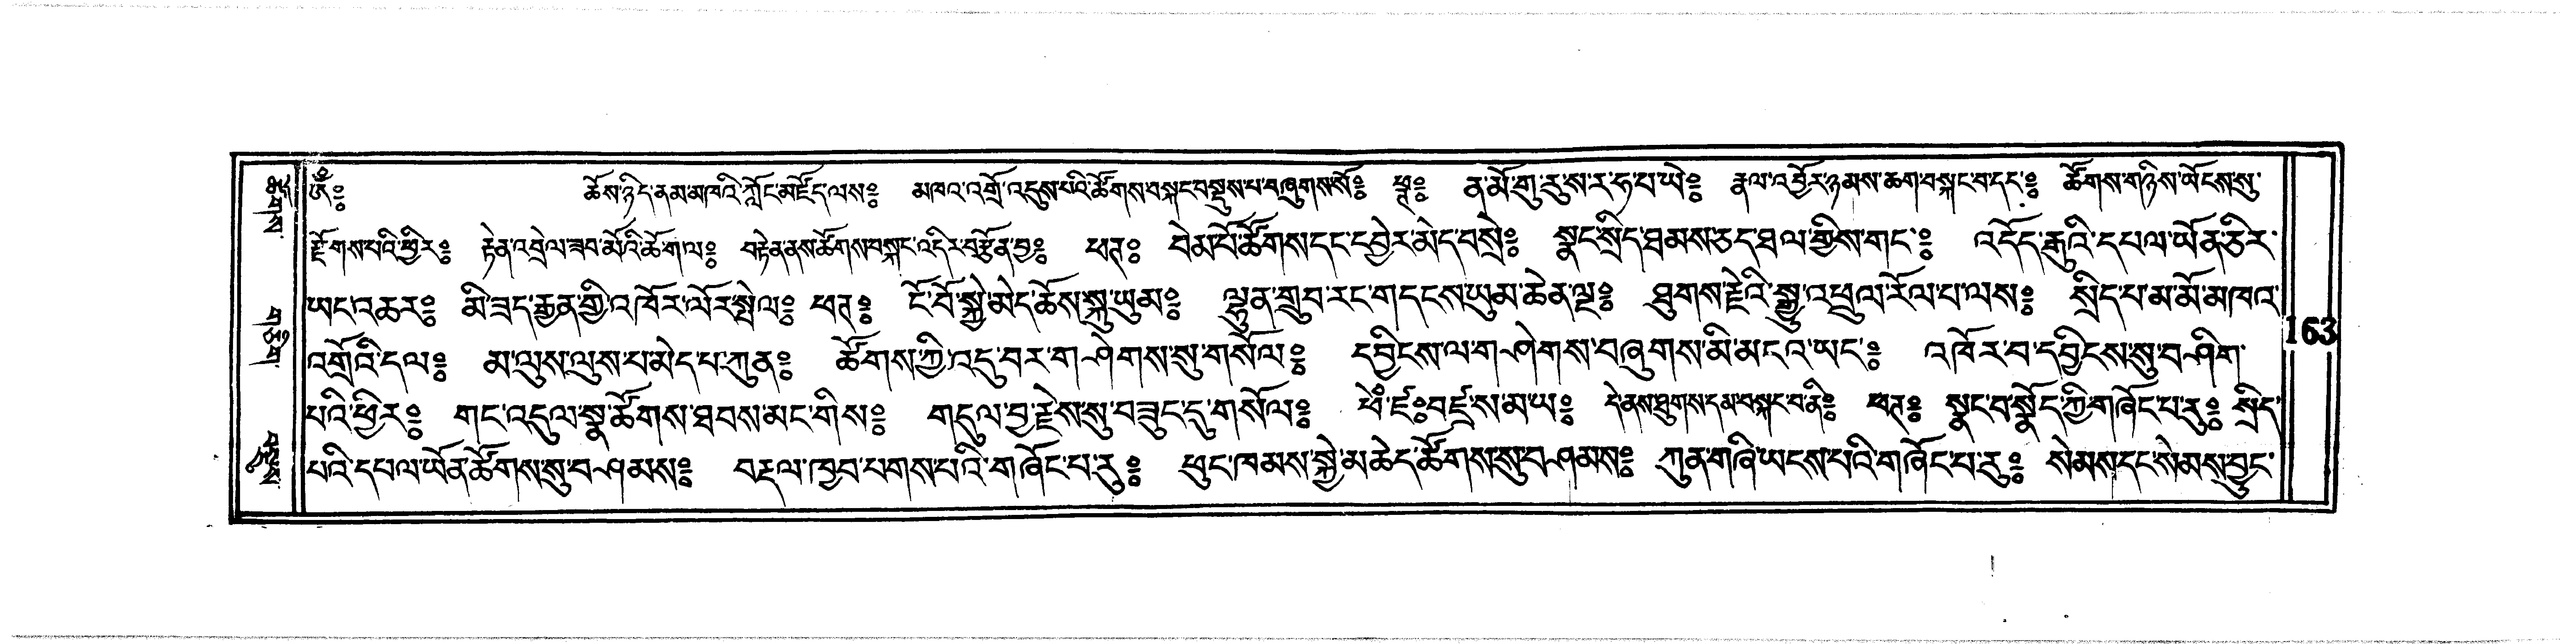 ༀ༔ ཆོས་ཉིད་ནམ་མཁའི་ཀློང་མཛོད་ལས༔ མཁའ་འགྲོ་འདུས་པའི་ཚོགས་བསྐང་བསྡུས་པ་བཞུགས་སོ༔ ཕཊ༔ ན་མོ་གུ་རུ་ས་ར་ཧ་པ་ཡེ༔ རྣལ་འབྱོར་ཉམས་ཆག་བསྐང་བ་དང་༔ ཚོགས་གཉིས་ཡོངས་སུ་
རྫོགས་པའི་ཕྱིར༔ རྟེན་འབྲེལ་ཟབ་མོའི་ཆོ་ག་ལ༔ བརྟེན་ནས་ཚོགས་བསྐང་འདིར་བརྩོན་བྱ༔ ཕཊ༔ བེམ་པོ་ཚོགས་དང་དབྱེར་མེད་བསྲེ༔ སྣང་སྲིད་ཐམས་ཅད་ཐལ་གྱིས་གང་༔ འདོད་རྒུའི་དཔལ་ཡོན་ཅིར་
ཡང་འཆར༔ མི་ཟད་རྒྱན་གྱི་འཁོར་ལོར་སྤེལ༔ ཕཊ༔ ངོ་བོ་སྐྱེ་མེད་ཆོས་སྐུ་ཡུམ༔ ལྷུན་གྲུབ་རང་གདངས་ཡུམ་ཆེན་ལྔ༔ ཐུགས་རྗེའི་སྒྱུ་འཕྲུལ་རོལ་པ་ལས༔ སྲིད་པ་མ་མོ་མཁའ་
འགྲོའི་དལ༔ མ་ལུས་ལུས་པ་མེད་པ་ཀུན༔ ཚོགས་ཀྱི་འདུ་བར་གཤེགས་སུ་གསོལ༔ དབྱིངས་ལ་གཤེགས་བཞུགས་མི་མངའ་ཡང་༔ འཁོར་བ་དབྱིངས་སུ་བཤིག་
པའི་ཕྱིར༔ གང་འདུལ་སྣ་ཚོགས་ཐབས་མང་གིས༔ གདུལ་བྱ་རྗེས་སུ་བཟུང་དུ་གསོལ༔ ཕེཾ་ཛཿ་བཛྲ་ས་མ་ཡ༔ དེ་ནས་ཐུགས་དམ་བསྐང་བ་ནི༔ ཕཊ༔ སྣང་བ་སྣོད་ཀྱི་གཞོང་པ་རུ༔ སྲིད་
པའི་དཔལ་ཡོན་ཚོགས་སུ་བཤམས༔ བརྡལ་ཁྱབ་པགས་པའི་གཞོང་པ་རུ༔ ཕུང་ཁམས་སྐྱེ་མཆེད་ཚོགས་སུ་བཤམས༔ ཀུན་གཞི་ཡངས་པའི་གཞོང་པ་རུ༔ སེམས་དང་སེམས་བྱུང་
163